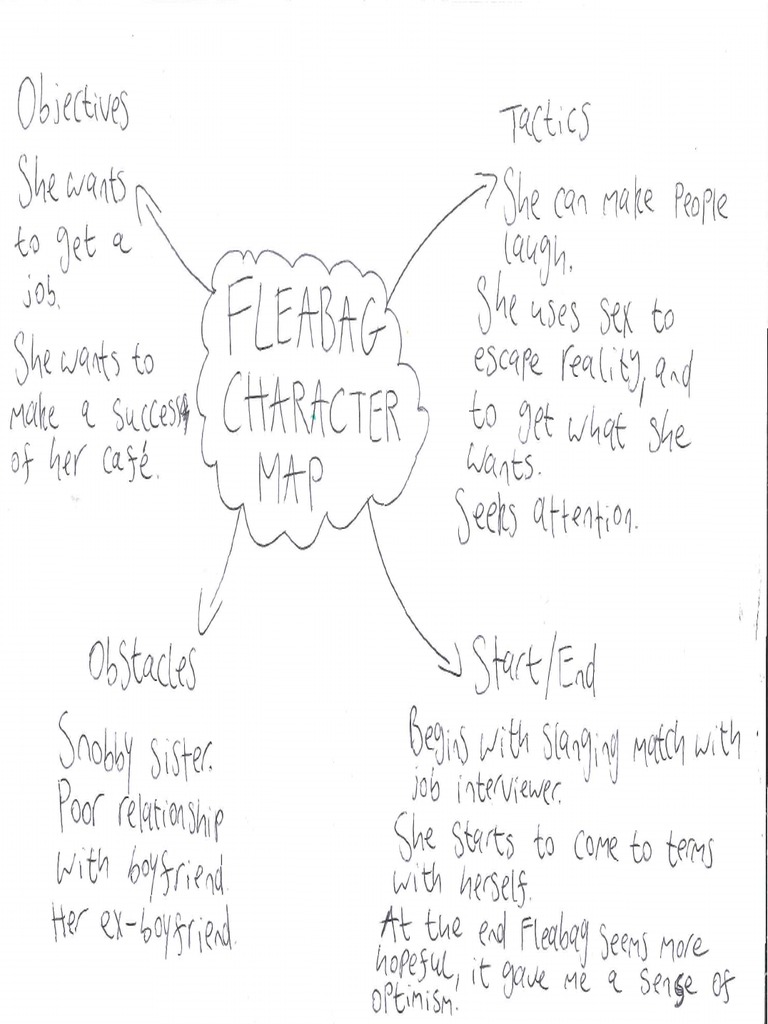 Objectives
She wants
to get a
job.
She wants to
make a success
of her café.
FLEABAG
CHARACTER
MAP
Tactics
She can make people
laugh.
She uses sex to
escape reality, and
to get what she
wants.
Seeks attention.
Obstacles
Snobby sister.
Poor relationship
with boyfriend.
Her ex-boyfriend.
Start/End
Begins with slanging match with
job interviewer.
She starts to come to terms
with herself.
At the end Fleabag seems more
hopeful, it gave me a sense of
optimism.